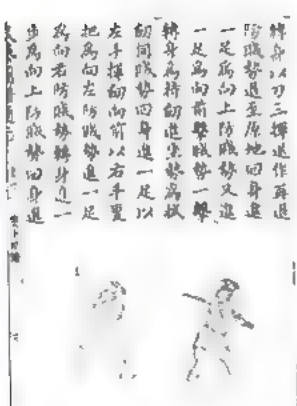 轉身以刀三揮退作再退
防賊勢退至原地回身進
一足爲向上防賊勢又進
一足爲向前擊賊勢一擊
轉身爲持劒進坐勢爲拭
劒伺賊勢回身進一足以
左手揮劒向前以右手
把爲向左防賊勢退一足
爲向右防賊勢轉身進一
步爲向上防賊勢回身退